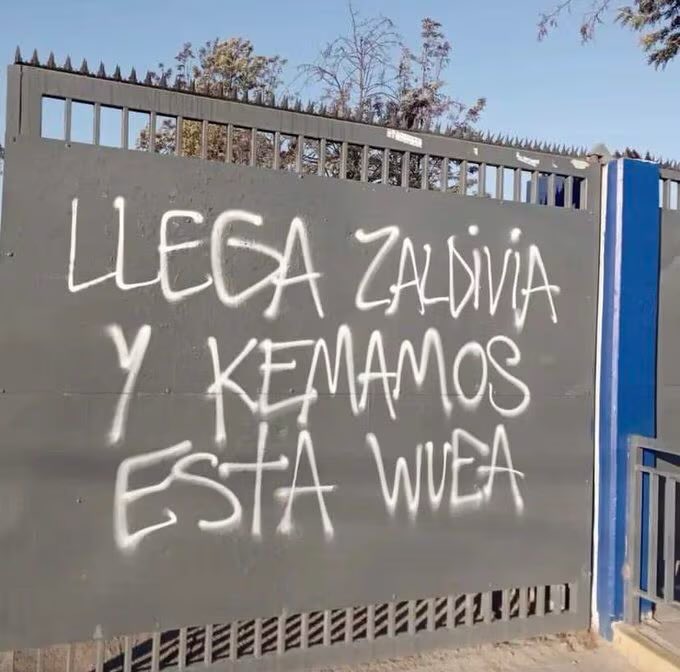 LLEGA ZALDIViA
Y KEMAMOS
ESTA WUEA